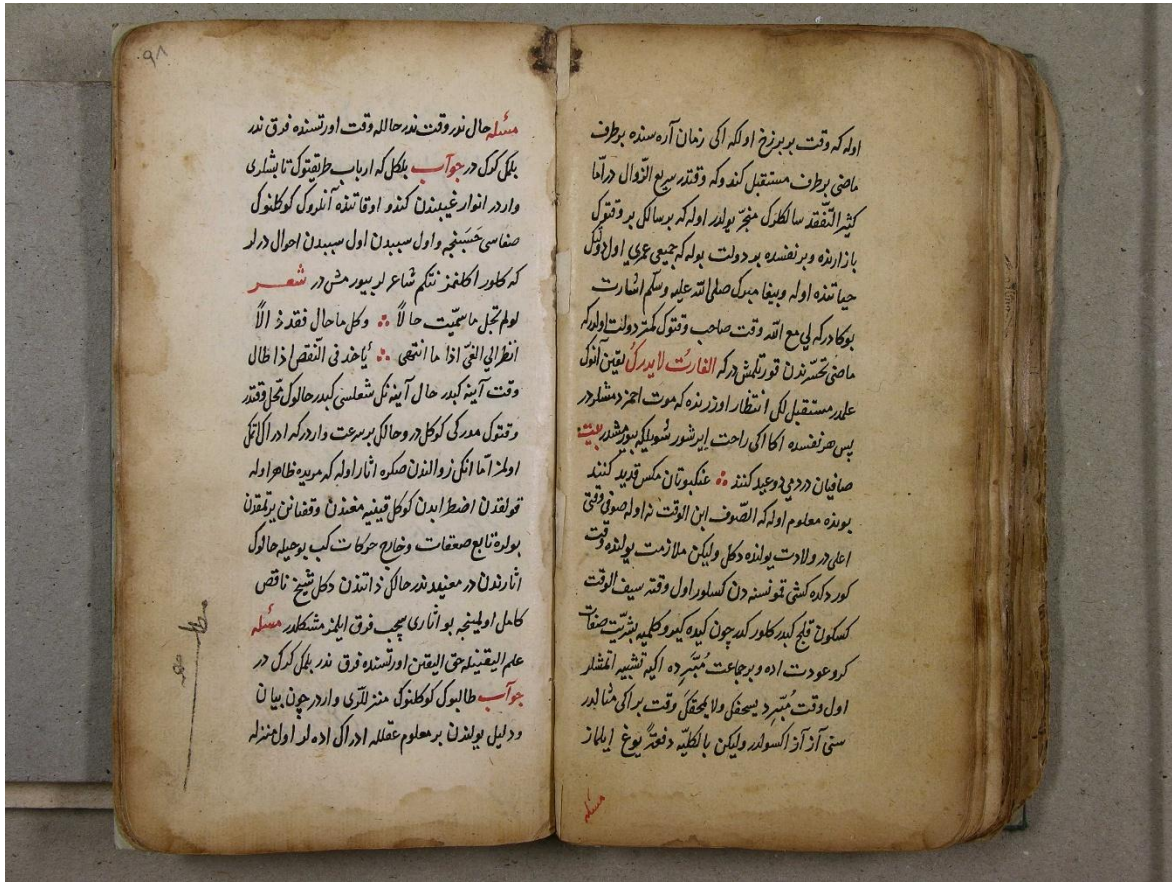 اوله که وقت بر برزخ اوله که اکی زمان آره سنده بر طرف
ماضی بر طرف مستقبل کندو که وقتدر سریع الزوال در اما
کثیر التّفقد سالکلوک منجر بولدر اوله که بر سالک بر وقتوک
بازارنده و بر نفسده بر دولت بوله که جمیعی عمری اول دولک
حیاتنده اوله و پیغامبرک صلی الله علیه وسلم اشارت
بوکا درکه لی مع الله وقت صاحب وقتوک کمتر دولت اولدرکه
ماضی تحسّرندن قورتلمش در که الفارت لایدرک یقین آنوک
علمدر مستقبل لکن انتظار اوزرنده که موت احمر دمشلر در
پس هر نفسده اکا اکی راحت ایرشور شویله که بیورمشدر بیت
صافیان در دمی دو عید کنند ؞ عنکبوتان مکس قدید کنند
بونده معلوم اوله که الصّوف ابن الوقت نه اوله صوفی وقتی
اعلی در ولادت یولنده دکل ولیکن ملازمت یولنده وقت
کوردکده کشی قمونسنه دن کسلور اول وقته سیف الوقت
کسکون قلج کبدر کلور کبدر چون کیده کیرو کلمیه بشریّت صفات
کرو عودت اده و بر جماعت مُبَرِّده اکیه تشبیه اتمشلر
اول وقت مُبَرِّد یسحقک ولا یمحقک وقت بر اکی مثالیدر
سنی آز آز اکسولدر ولیکن بالکلیّه دفعةً یوغ ایلماز
مسئله
۹۸
مسئله حال ندر وقت ندر حالله وقت اورتسنده فرق ندر
بلمک کرک در جوآب بلکل که ارباب طریقتوک تابشلری
واردر انوار غیبندن کندو اوقاتنده آنلروک کوکلنوک
صفاسی حَسَبنجه و اول سببدن اول سببدن احوال درلر
که کلور اکلنمز نتکم شاعر لر بیورمش در شعر
لولم تحل ما سمّیت حالاً ؞ وکل ما حال فقد زالاً
انظر الی الفیّ اذا ما انتهی ؞ یأخذ فی النّقص اذا طال
وقت آینه کبدر حال آینه نک شعلسی کبدر حالوک محل وقتدر
وقتوک مدرکی کوکل در و حالک بر سرعت واردر که ادراک اتمک
اولمز اما انک زوالندن صکره اثار اوله که مریده ظاهر اوله
قولقدن اضطرابدن کوکل قینیه مغندن و قفتانن یرتمقدن
بولره تابع صعقات و خارج حرکات کب بو جمله حالوک
اثارندن در معنیدندر حالک ذاتندن دکل شیخ ناقص
کامل اولمینجه بو اثاری سچب فرق ایلمز مشکلدر مسئله
علم الیقینله حق الیقین اورتسنده فرق ندر بلمک کرک در
جوآب طالبوک کوکلنوک منزللری واردر چون بیان
و دلیل یولندن بر معلوم عقلله ادراک اده لر اول منزله